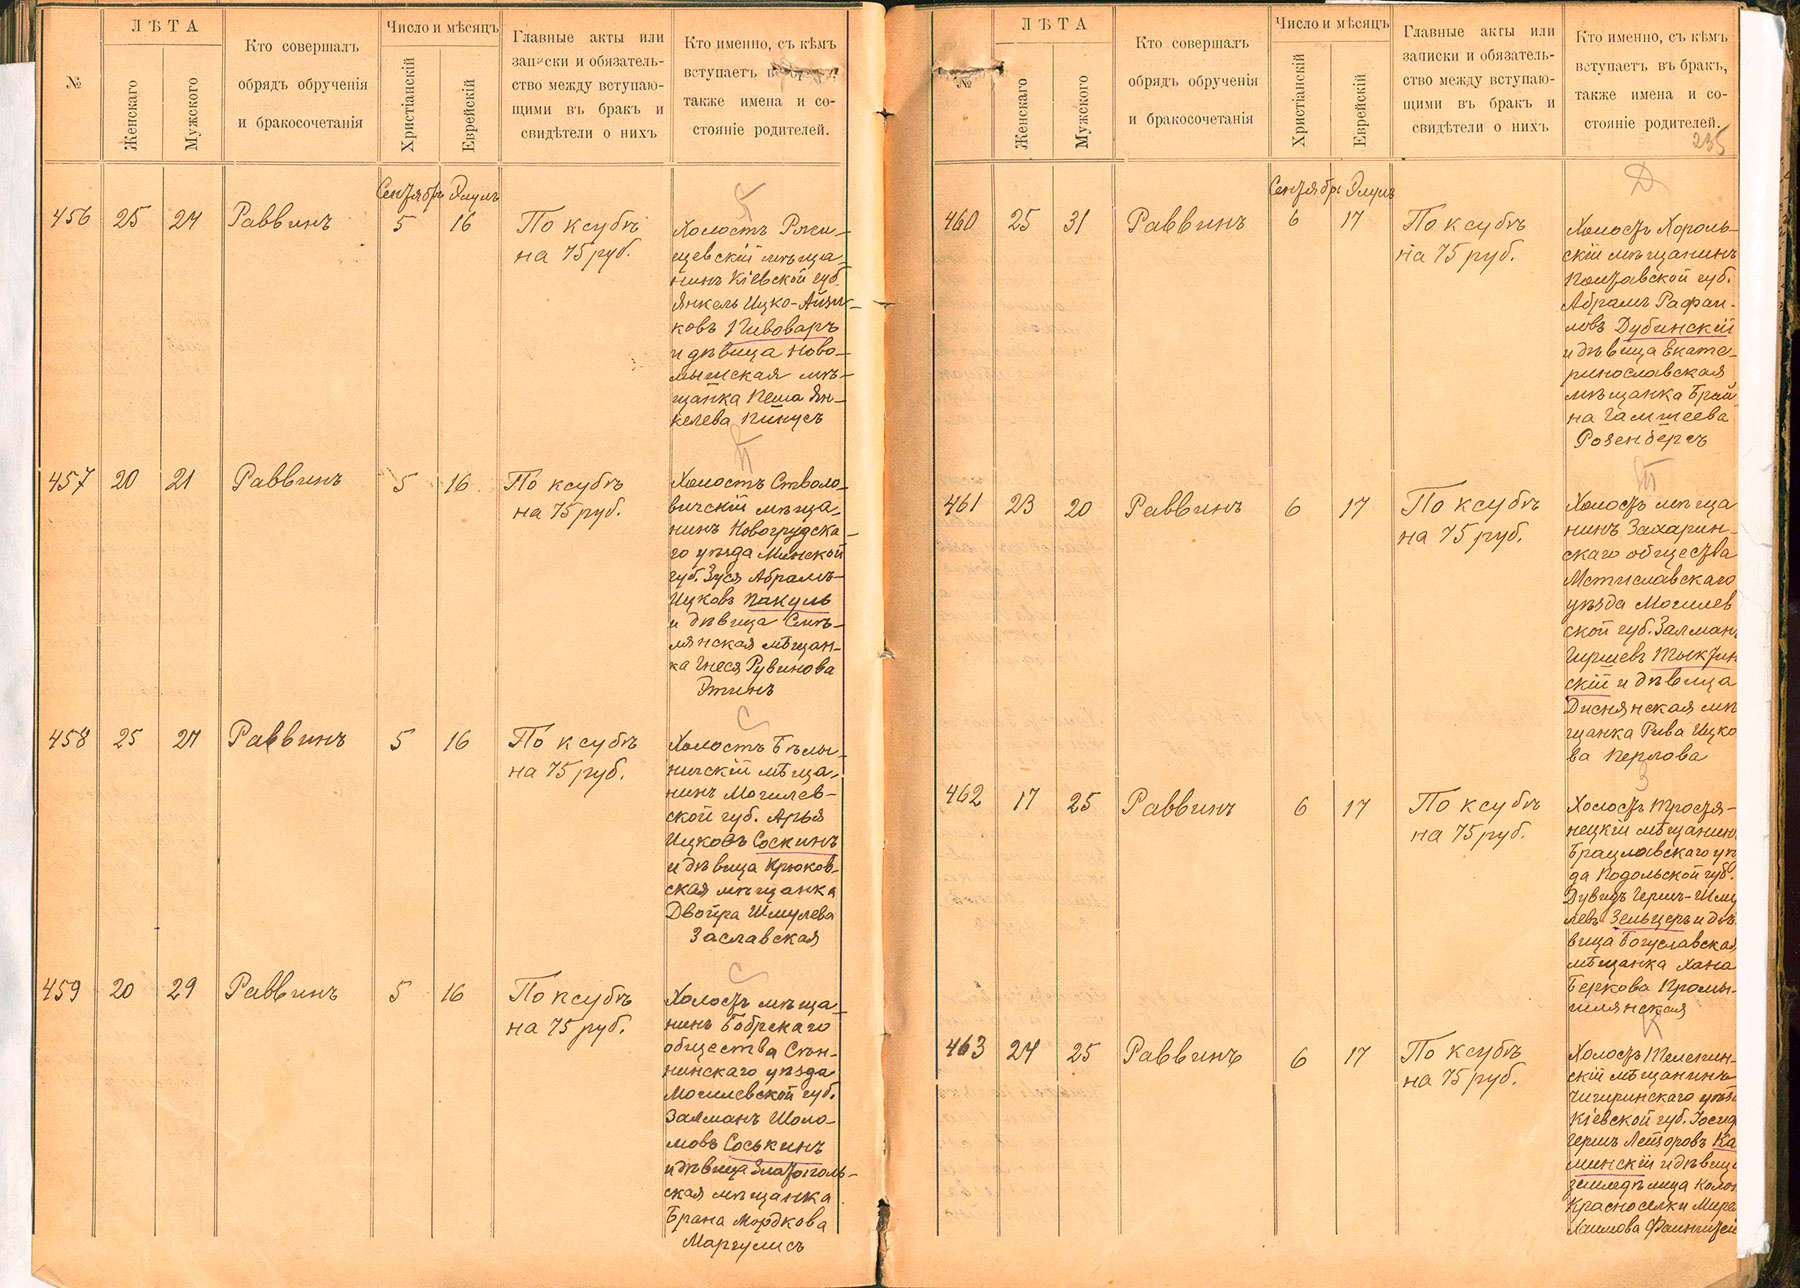 №
ЛѢТА
Женскаго
Мужского
Кто совершалъ
обрядъ обрученія
и бракосочетанія
Число и мѣсяцъ
Христіанскій
Еврейскій
Главные акты или
записки и обязатель-
ство между вступаю-
щими въ бракъ и
свидѣтели о нихъ
Кто именно, съ кѣмъ
вступаетъ въ
также имена и со-
стояніе родителей.
Сентябрь Элулъ
456 25 27 Раввинъ 5 16 По ксубѣ
на 75 руб.
П
Холостъ Ржи-
щевскій мѣща-
нинъ Кіевской губ.
Янкель Ицко-Айзи-
ковъ Пивоваръ
и дѣвица Ново-
мѣ-
щанка Песя Ян-
келева Пинусъ
457 20 21 Раввинъ 5 16 По ксубѣ
на 75 руб.
П
Холостъ Стволо-
вичскій мѣща-
нинъ Новогрудска-
го уѣзда Минской
губ. Зуся Абрамъ-
Ицковъ Пакуль
и дѣвица Смѣ-
лянская мѣщан-
ка Гнеся Рувинова
Этинъ
458 25 27 Раввинъ 5 16 По ксубѣ
на 75 руб.
С
Холостъ Бѣлы-
ничскій мѣща-
нинъ Могилев-
ской губ. Арья
Ицковъ Соскинъ
и дѣвица Крюков-
ская мѣщанка
Двойра Шмулева
Заславская
459 20 29 Раввинъ 5 16 По ксубѣ
на 75 руб.
С
Холостъ мѣща-
нинъ Бобрскаго
общества Сѣн-
нинскаго уѣзда
Могилевской губ.
Залманъ Шоло-
мовъ Соськинъ
и дѣвица Златополь-
ская мѣщанка
Брана Мордкова
Маргулисъ
№
ЛѢТА
Женскаго
Мужского
Кто совершалъ
обрядъ обрученія
и бракосочетанія
Число и мѣсяцъ
Христіанскій
Еврейскій
Главные акты или
записки и обязатель-
ство между вступаю-
щими въ бракъ и
свидѣтели о нихъ
Кто именно, съ кѣмъ
вступаетъ въ бракъ,
также имена и со-
стояніе родителей.
235
Сентябрь Элулъ
460 25 31 Раввинъ 6 17 По ксубѣ
на 75 руб.
Д
Холостъ Хороль-
скій мѣщанинъ
Полтавской губ.
Абрамъ Рафаи-
ловъ Дубинскій
и дѣвица Екате-
ринославская
мѣщанка Брай
на Гамшеева
Розенбергъ
461 23 20 Раввинъ 6 17 По ксубѣ
на 75 руб.
Т
Холостъ мѣща
нинъ Захарин-
скаго общества
Мстиславскаго
уѣзда Могилев
ской губ. Залман
Гиршевъ Тыктин
скій и дѣвица
Диснянская мѣ
щанка Рива Ицко
ва Перлова
462 17 25 Раввинъ 6 17 По ксубѣ
на 75 руб.
З
Холостъ Тростя-
нецкій мѣщанин
Брацлавскаго уѣ
да Подольской губ.
Дувидъ Герш-Шму
левъ Зельцеръ и дѣ
вица Богуславская
мѣщанка Хана
Беркова Промы-
шлянская
463 27 25 Раввинъ 6 17 По ксубѣ
на 75 руб.
К
Холостъ Телепин-
скій мѣщанинъ
Чигиринскаго уѣз
Кіевской губ. Іосиф
Герш Лейзоровъ Ка
минскій и дѣвиц
землед ѣлица колон
Красноселки Мира
Хаимова